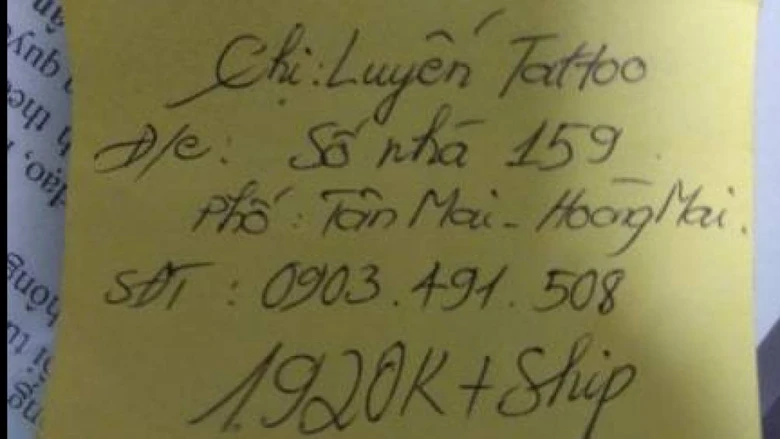 Chị: Luyến Tattoo
Đ/c: Số nhà 159
Phố: Tân Mai - Hoàng Mai.
SĐT: 0903.491.508
1.920K + Ship